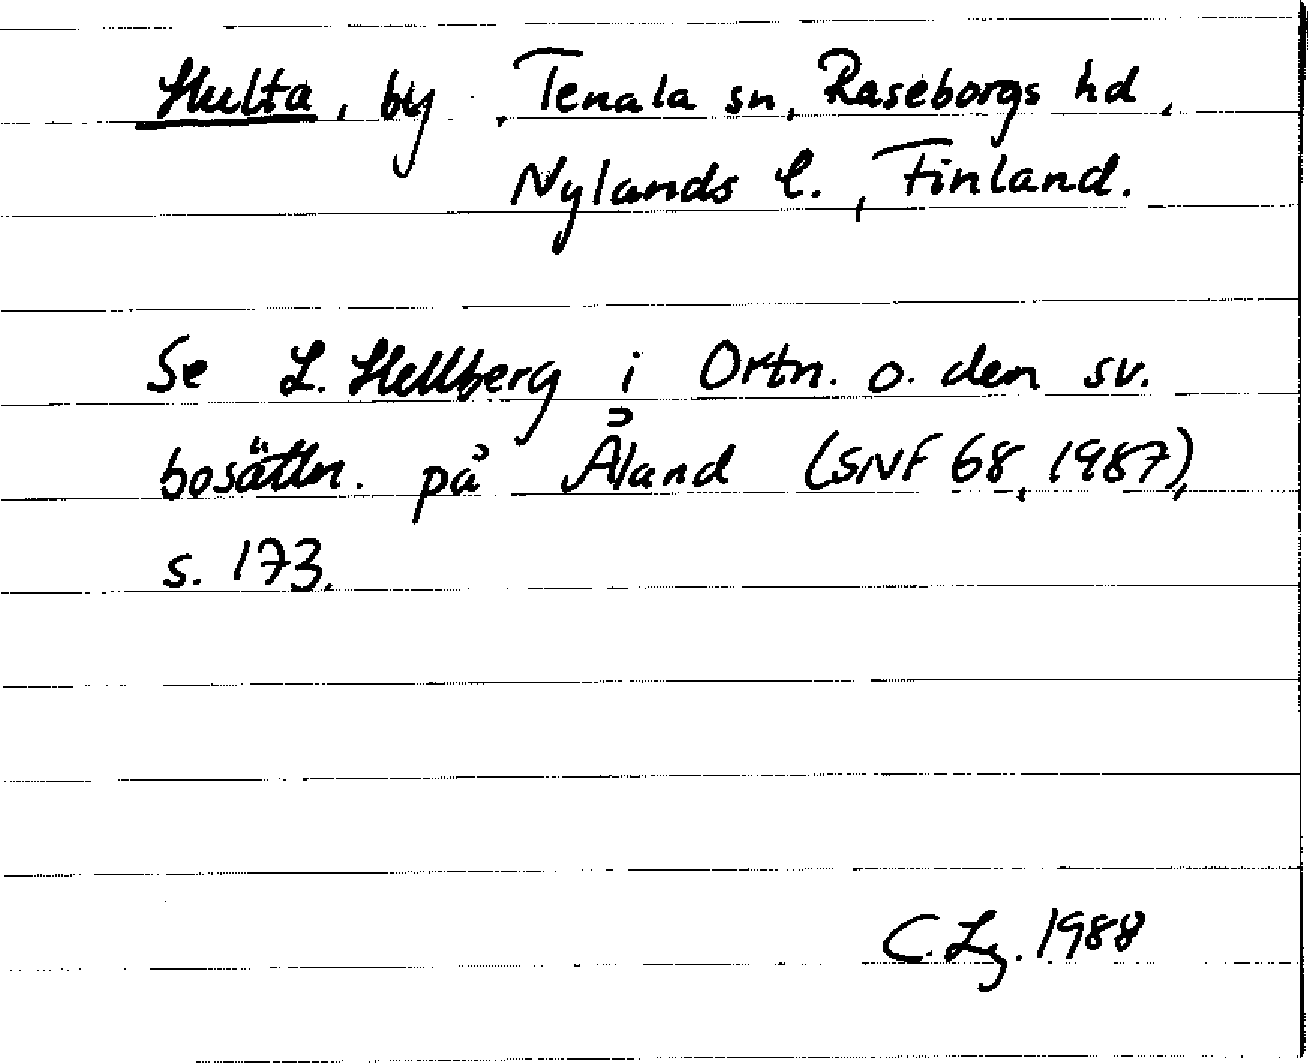 Hulta, by, Tenala sn, Raseborgs hd,
Nylands l., Finland.
Se L. Hellberg i Ortn. o. den sv.
bosättn. på Åland (SNF 68, 1987),
s. 173.
C. Lg. 1988